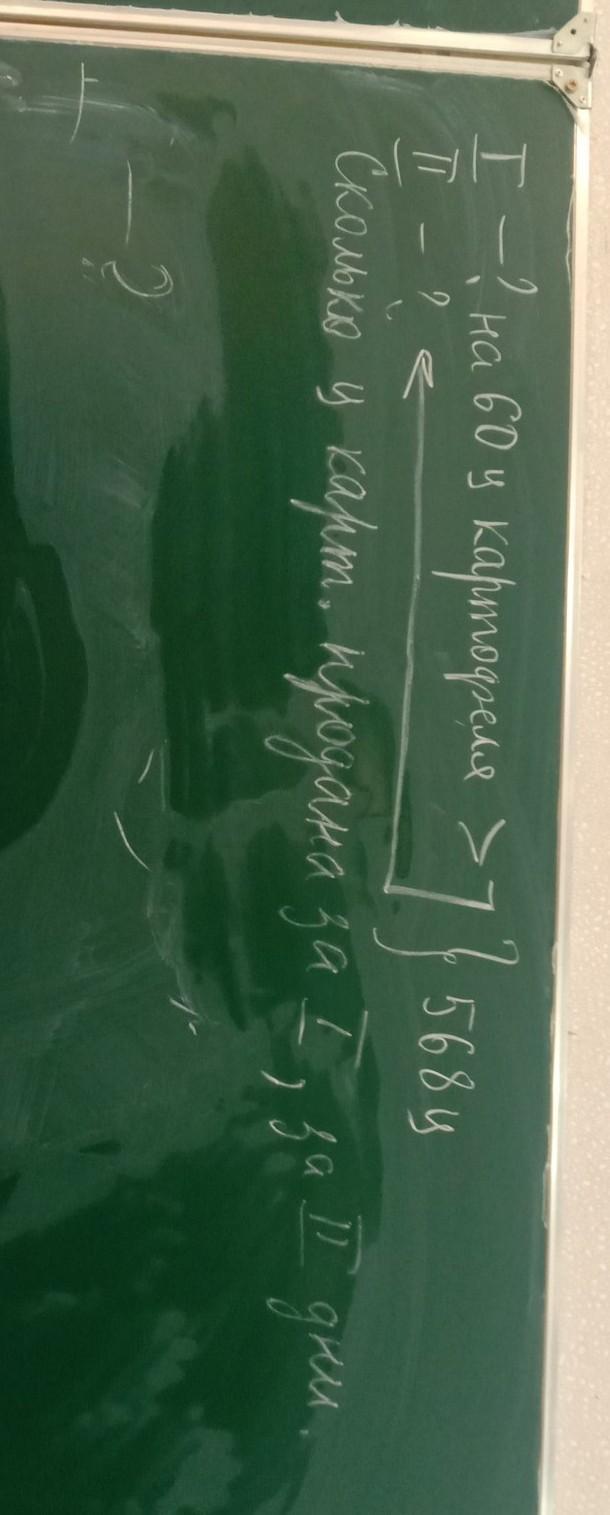 I - ?, на 60 ц картофеля >
II - ? } 568 ц
Сколько ц карт. продана за I, за II дни.
I — ?